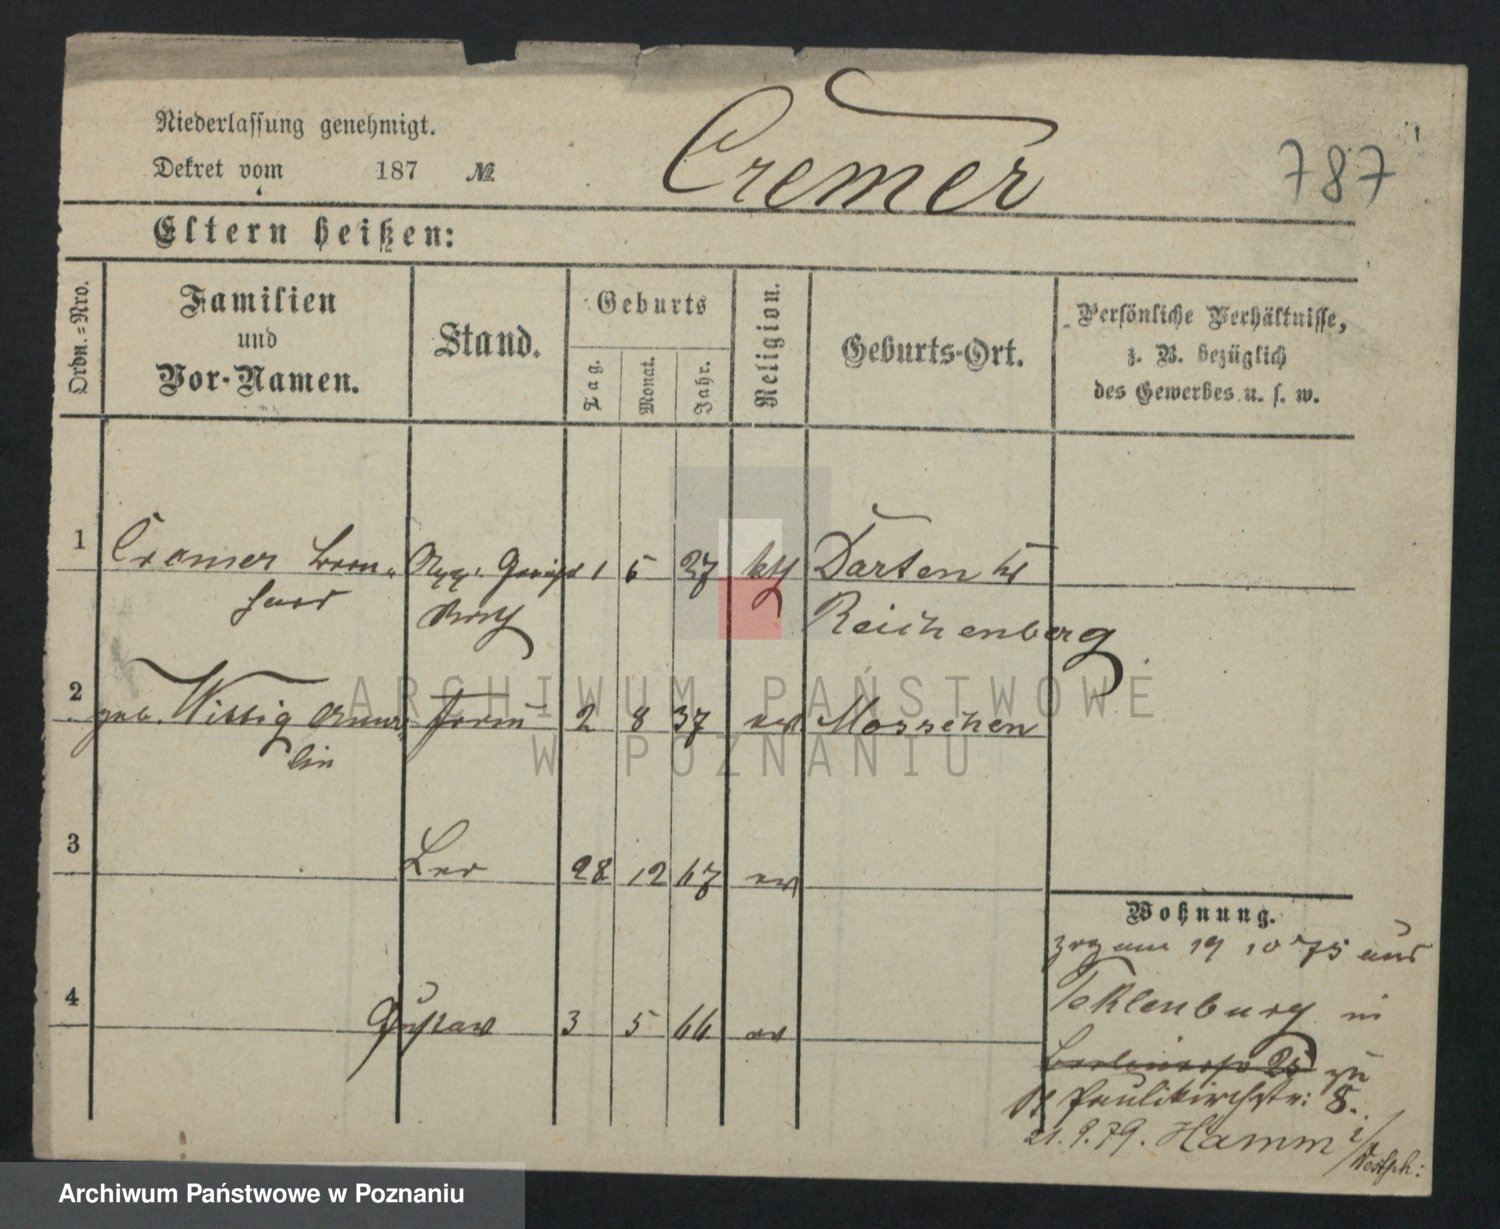 Niederlassung genehmigt.
Dekret vom 187 №
Cremer
787
Eltern heißen:
Ordn.=Nro.
Familien
und
Vor-Namen.
Stand.
Geburts
Tag.
Monat.
Jahr.
Religion.
Geburts-Ort.
Persönliche Verhältnisse,
z. B. bezüglich
des Gewerbes u. s. w.
1 Cramer 1 5 27 kth Darten
Rath Reichenberg
2 geb. Wittig 2 8 37 ev Mosschen
lin
3 28 12 67 ev
4 Gustav 3 5 66 ev
Wohnung.
19 10 75 aus
Teklenburg in
25 zu
St Paulikirchstr: 8.
21.9.79. Hamm i/Westph:
ARCHIWUM PAŃSTWOWE
W POZNANIU
Archiwum Państwowe w Poznaniu